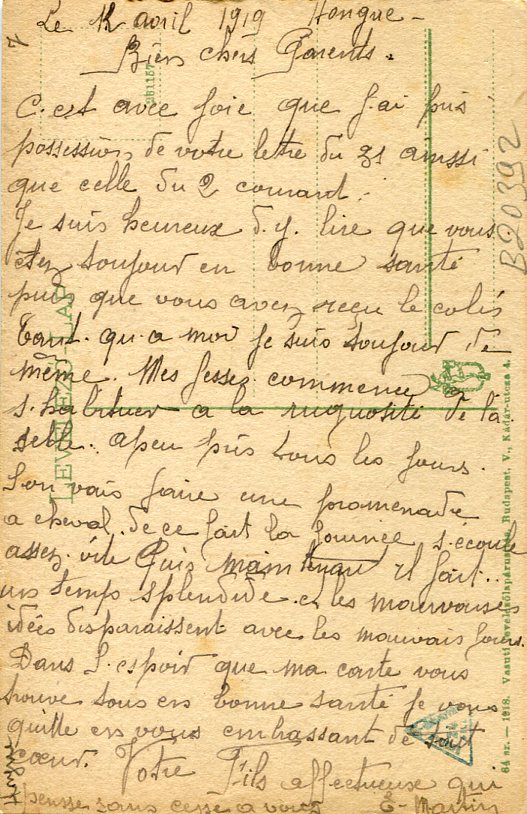 Le 12 avril 1919 Hongrie -
7
Biens chers Parents.
C.est avec joie que j.ai pris
possession de votre lettre du 31 ainssi
que celle du 2 courant.
Je suis heureux d.y. lire que vous
étez toujour en bonne santé
puis que vous avez reçu le colis
Tant. qu.a moi je suis toujour de
même. Mes fessez commence a
s.habituer a la rugosité de la
selle. apeu pris tous les jours.
l.on vais faire une promenade
a cheval, de ce fait la journée s.écoule
assez vite Puis maintenant il fait..
un temps splendide et les mauvaises
idées disparaissent avec les mauvais jours.
Dans l.espoir que ma carte vous
trouve tous en bonne santé je vous
quitte en vous embrassant de tout
cœur. Votre Fils affectueux qui
pensse sans cesse a vous E-
B20392
LEVELEZŐ-LAP
64 sz. — 1918. Vasuti levelezőlapárusitás Budapest, V., Kádár-utcza 4.